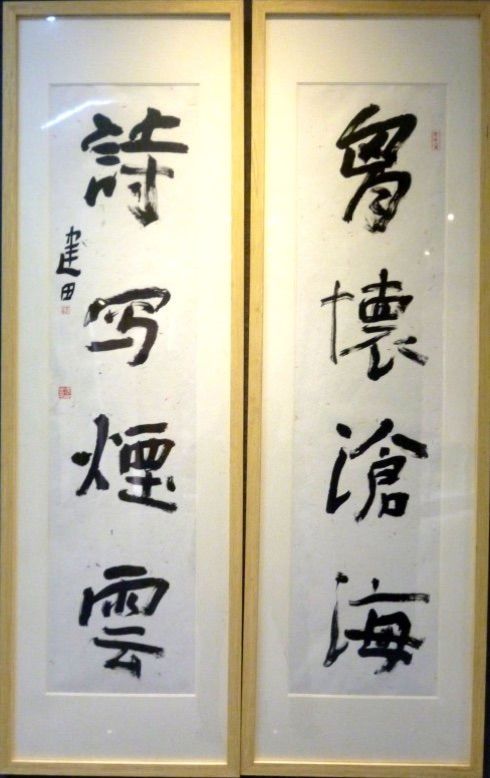 胷懷滄海
詩写煙雲
建田